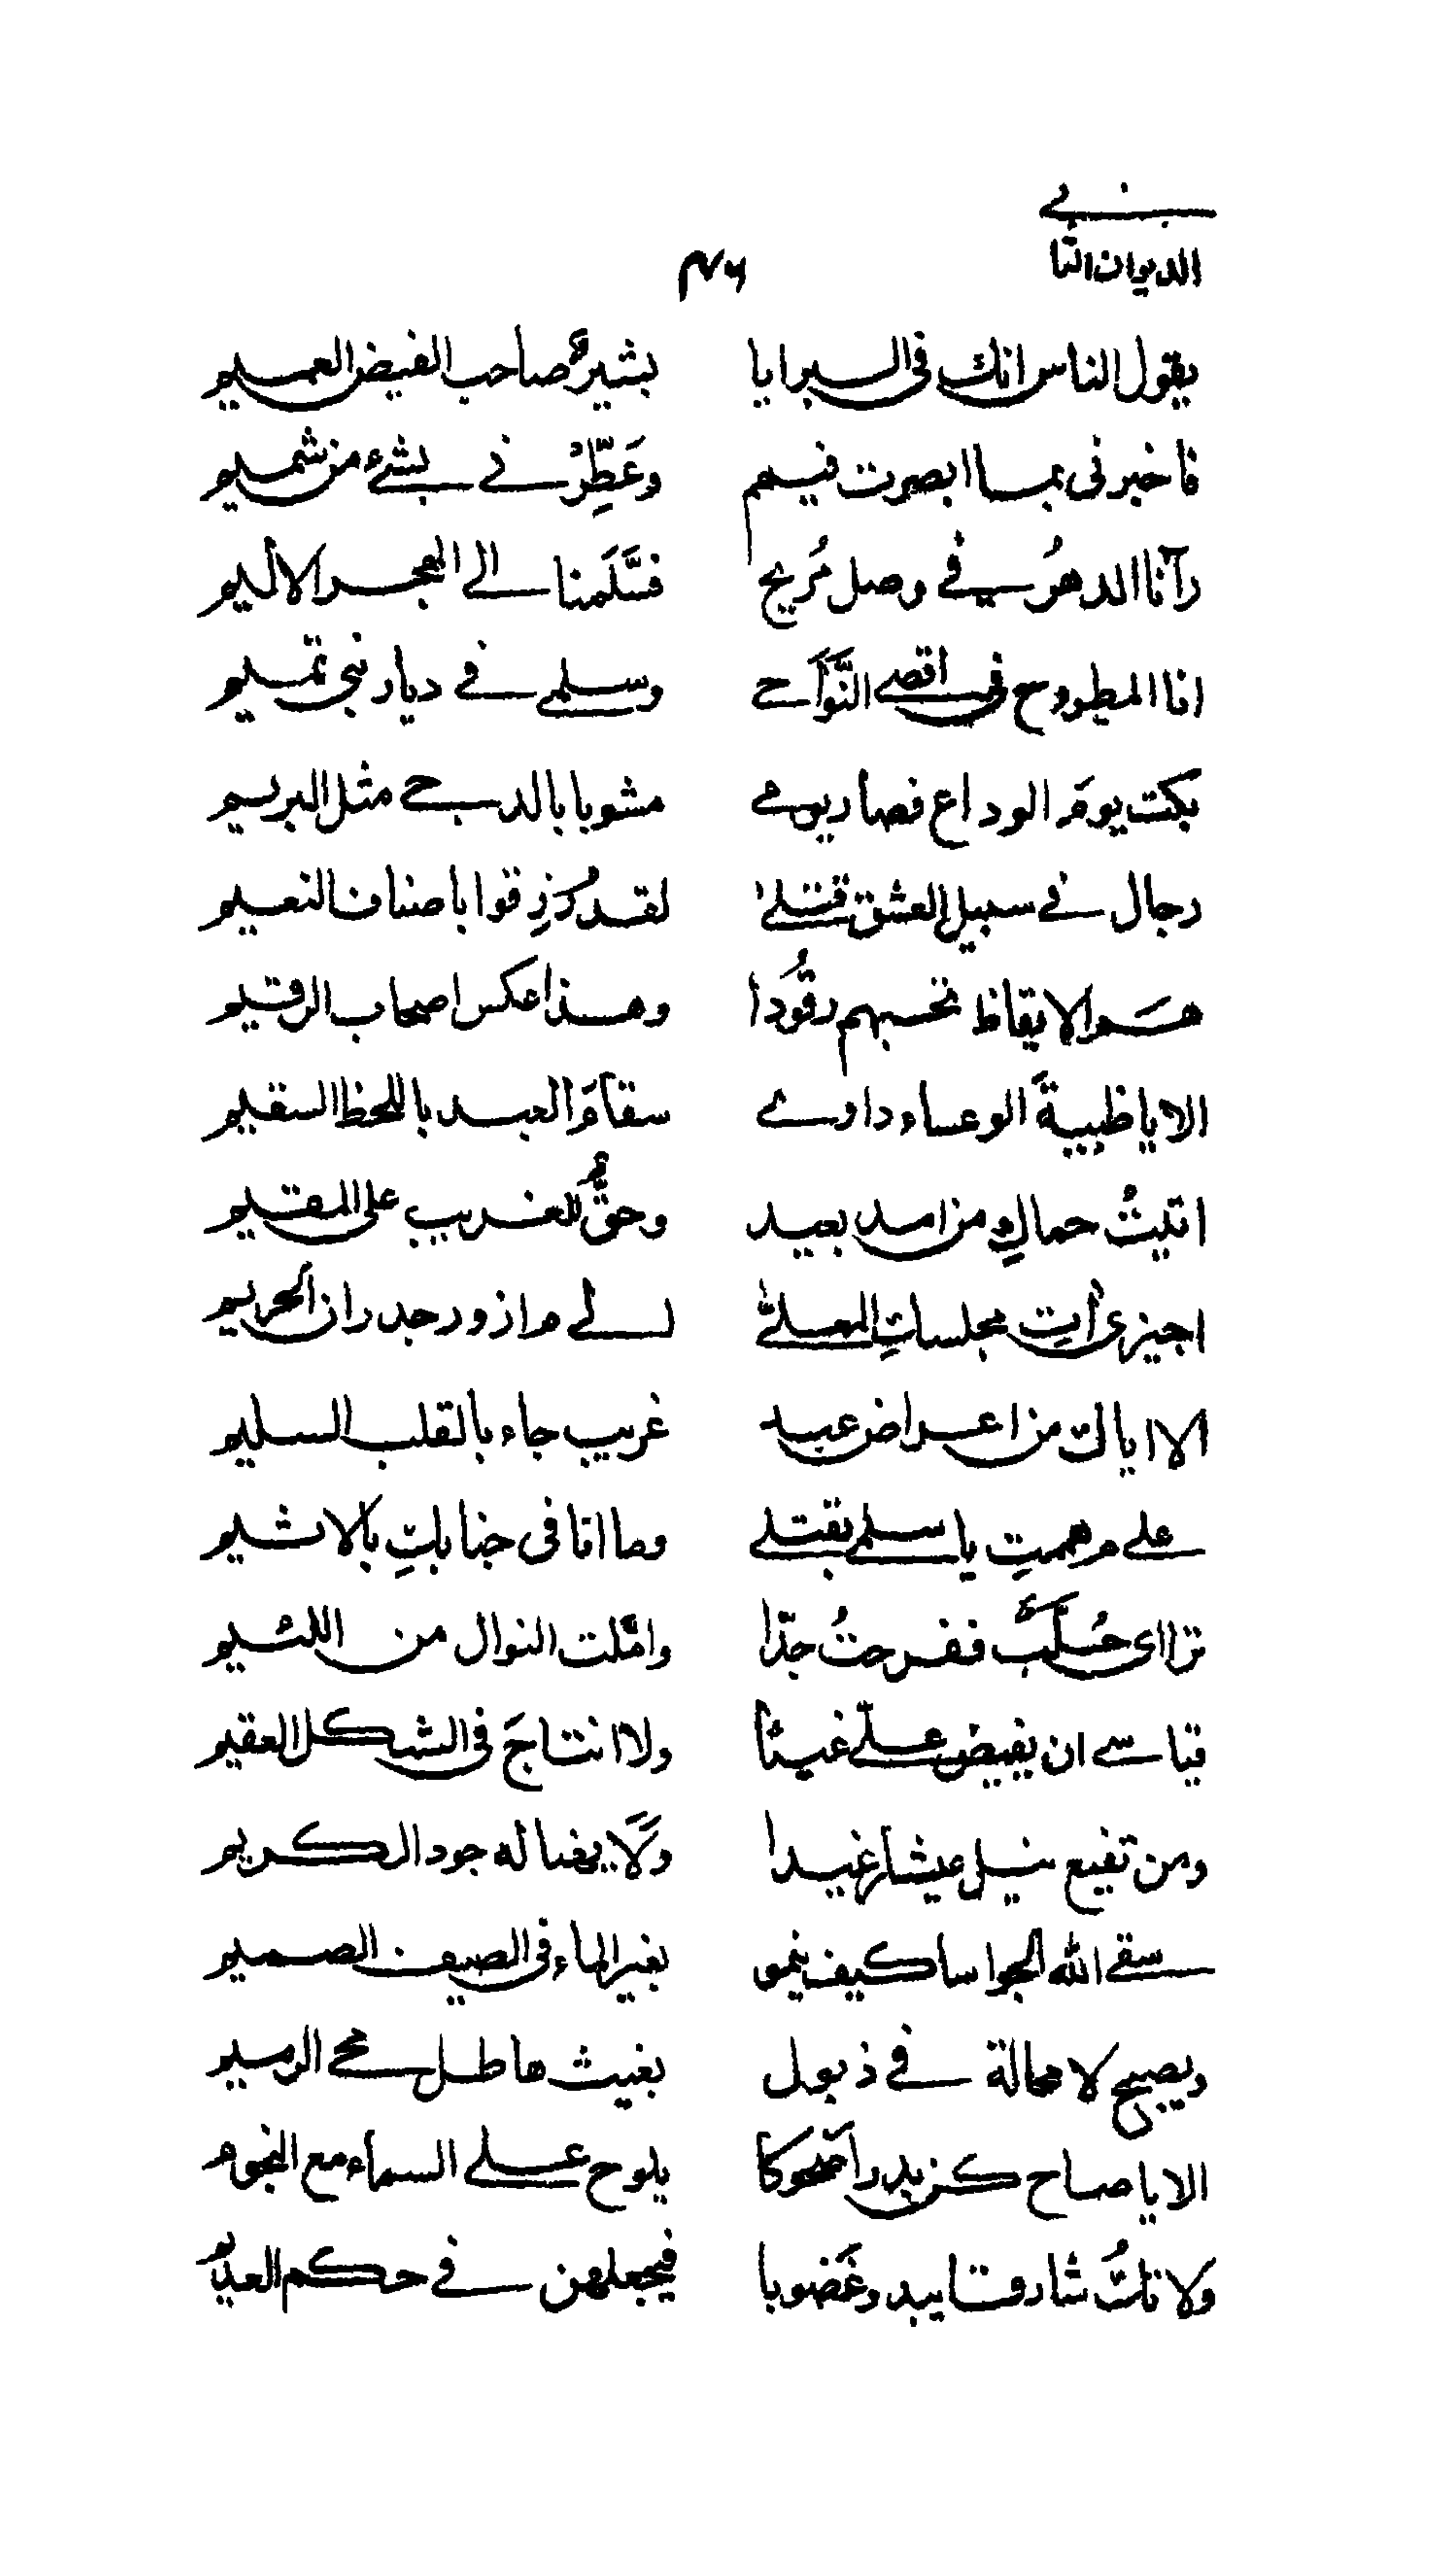 الديوان الثاني
٤٦
يقول الناس انك فى البرايا بشيرٌ صاحب الفيض العميم
فاخبرنى بما ابصرت فيهم وعَطِّرْنى بشئ من شميم
رآنا الدهرُ فى وصل مُريح فسَلَّمنا الى الهجر الاليم
انا المطروح فى اقصى النَّوَاحى وسلمى فى ديار بنى تميم
بكت يومَ الوداع فصار يومى مشوبا بالدجى مثل البريم
رجال فى سبيل العشق قتلى لقد رُزِقوا باصناف النعيم
هم الايقاظ تحسبهم رقُودا وهذا عكس اصحاب الرقيم
الا يا ظبيةَ الوعساء داوى سقامَ العبد باللحظ السقيم
اتيتُ حماكِ من امد بعيد وحقٌّ للغريب على المقيم
اجيزى أتِ مجلساتِ المعلى لكى ما ازور جدران الحريم
الا اياك من اعراض عبد غريب جاء بالقلب السليم
على م هممتِ يا سلمى بقتلى وما انا فى جنابكِ بالاثيم
تراءى خُلَّب ففرحتُ جدّا وامّلت النوال من اللئيم
قياسى ان يفيض علىّ غيثا ولا انتاجَ فى الشكل العقيم
ومن تفيع نيل عيشا رغيدا ولَا يهنا له جود الكريم
سقى الله الجواسا كيف ينمو بغير الماء فى الصيف الصميم
ويصبح لا محالة فى ذبول بغيث هاطل محى الرميم
الا يا صاح كن بدرا ضحوكا يلوح على السماء مع النجوم
ولا تكُ شارقا يبدو غَضوبا فيجعلهن فى حكم العديم